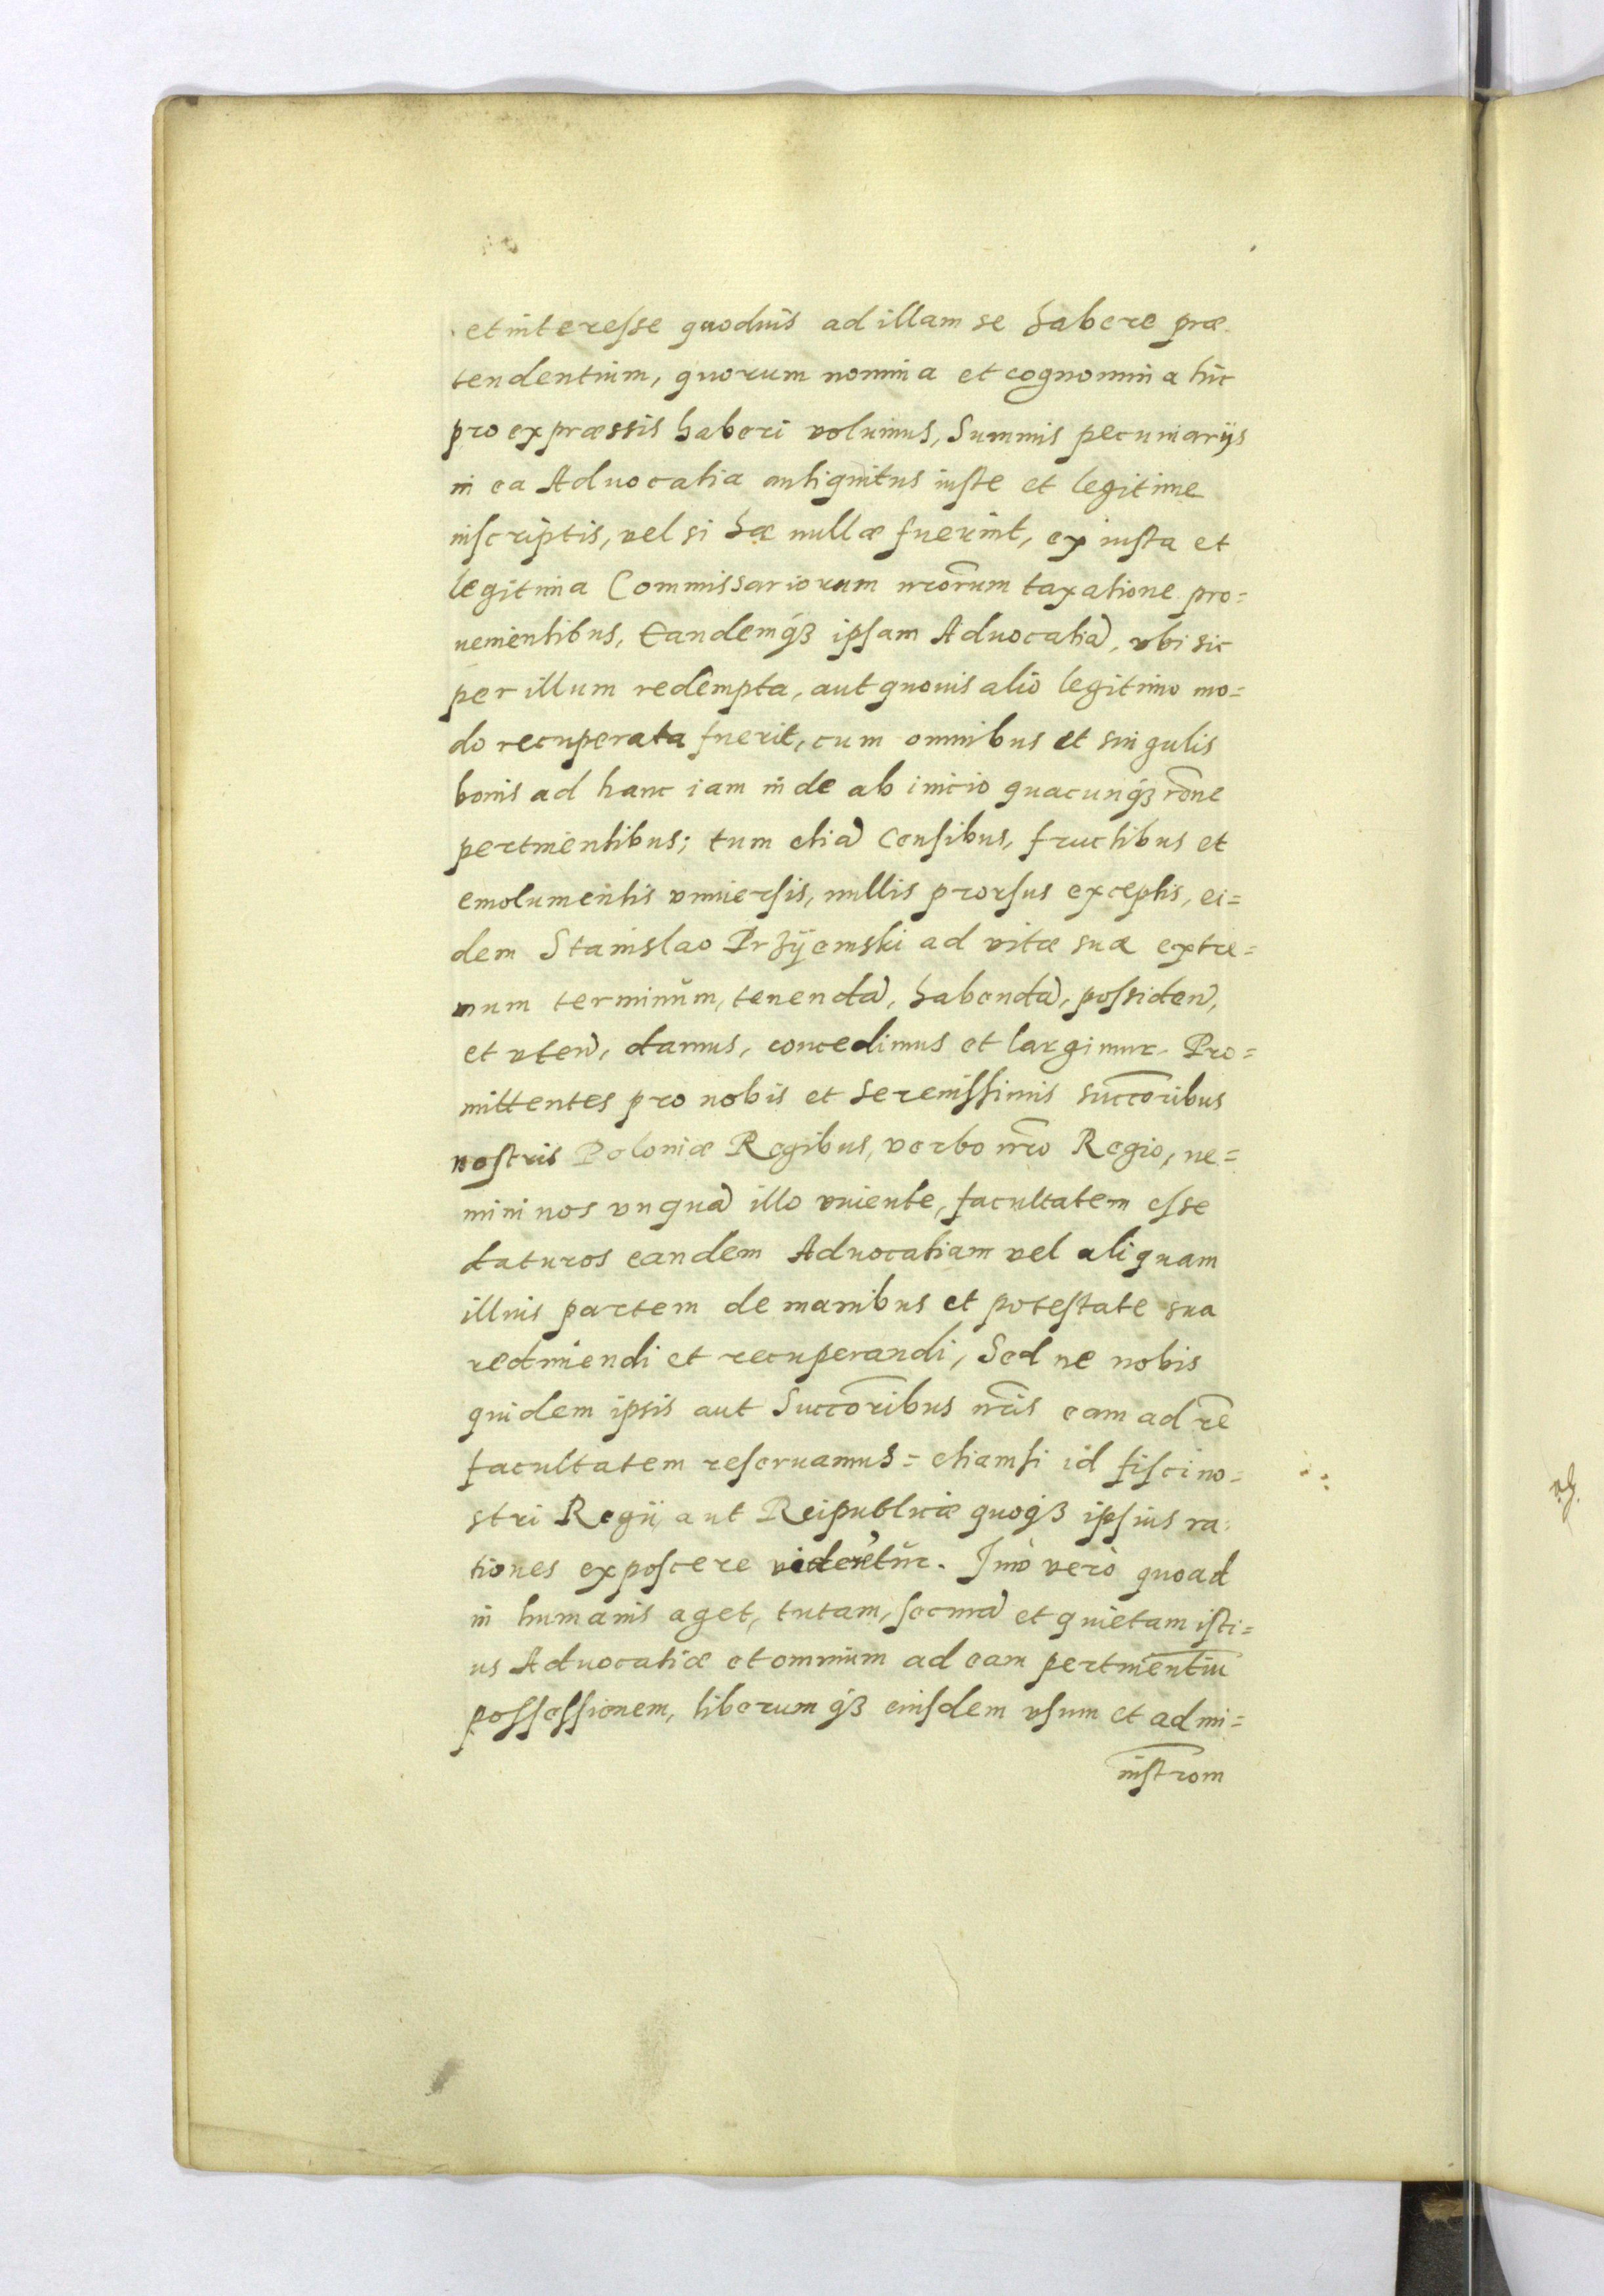 et interesse quoduis ad illam se habere præ
tendentium, quorum nomina et cognomina hic
pro expræssis haberi volumus, Summis pecuniarijs
in ea Aduocatia antiquitus iuste et legitime
inscriptis, vel si hæ nullæ fuerint, ex iusta et
legitima Commissariorum nrōrum taxatione pro=
uenientibus, Eandemq́ꝫ ipsam Aduocatiā, vbi sic
per illum redempta, aut quouis alio legitimo mo=
do recuperata fuerit, cum omnibus et singulis
bonis ad hanc iam inde ab inicio quacunq́ꝫ rōne
pertinentibus; tum etiā Censibus, fructibus et
emolumentis vniuersis, nullis prorsus exceptis, ei=
dem Stanislao Przÿemski ad vitæ suæ extre=
mum terminum, tenendā, habendā, possidēn,
et vtēn, damus, concedimus et largimur. Pro=
mittentes pro nobis et Serenissimis succōribus
nostris Poloniæ Regibus, verbo nrō Regio, ne=
mini nos vnquā illo viuente, facultatem esse
daturos eandem Aduocatiam vel aliquam
illius partem de manibus et potestate sua
redimendi et recuperandi, Sed ne nobis
quidem ipsis aut Succōribus nrīs eam ad rē
facultatem reseruamus= etiamsi id fisci no=
stri Regij aut Reipublicæ quoqꝫ ipsius ra=
tiones exposcere viderētur. Imò verò quoad
in humanis aget, tutam, securā et quietam isti=
us Aduocatiæ et omnium ad eam pertinentiū
possessionem, liberumq́ꝫ eiusdem vsum et admi=
nistrōm